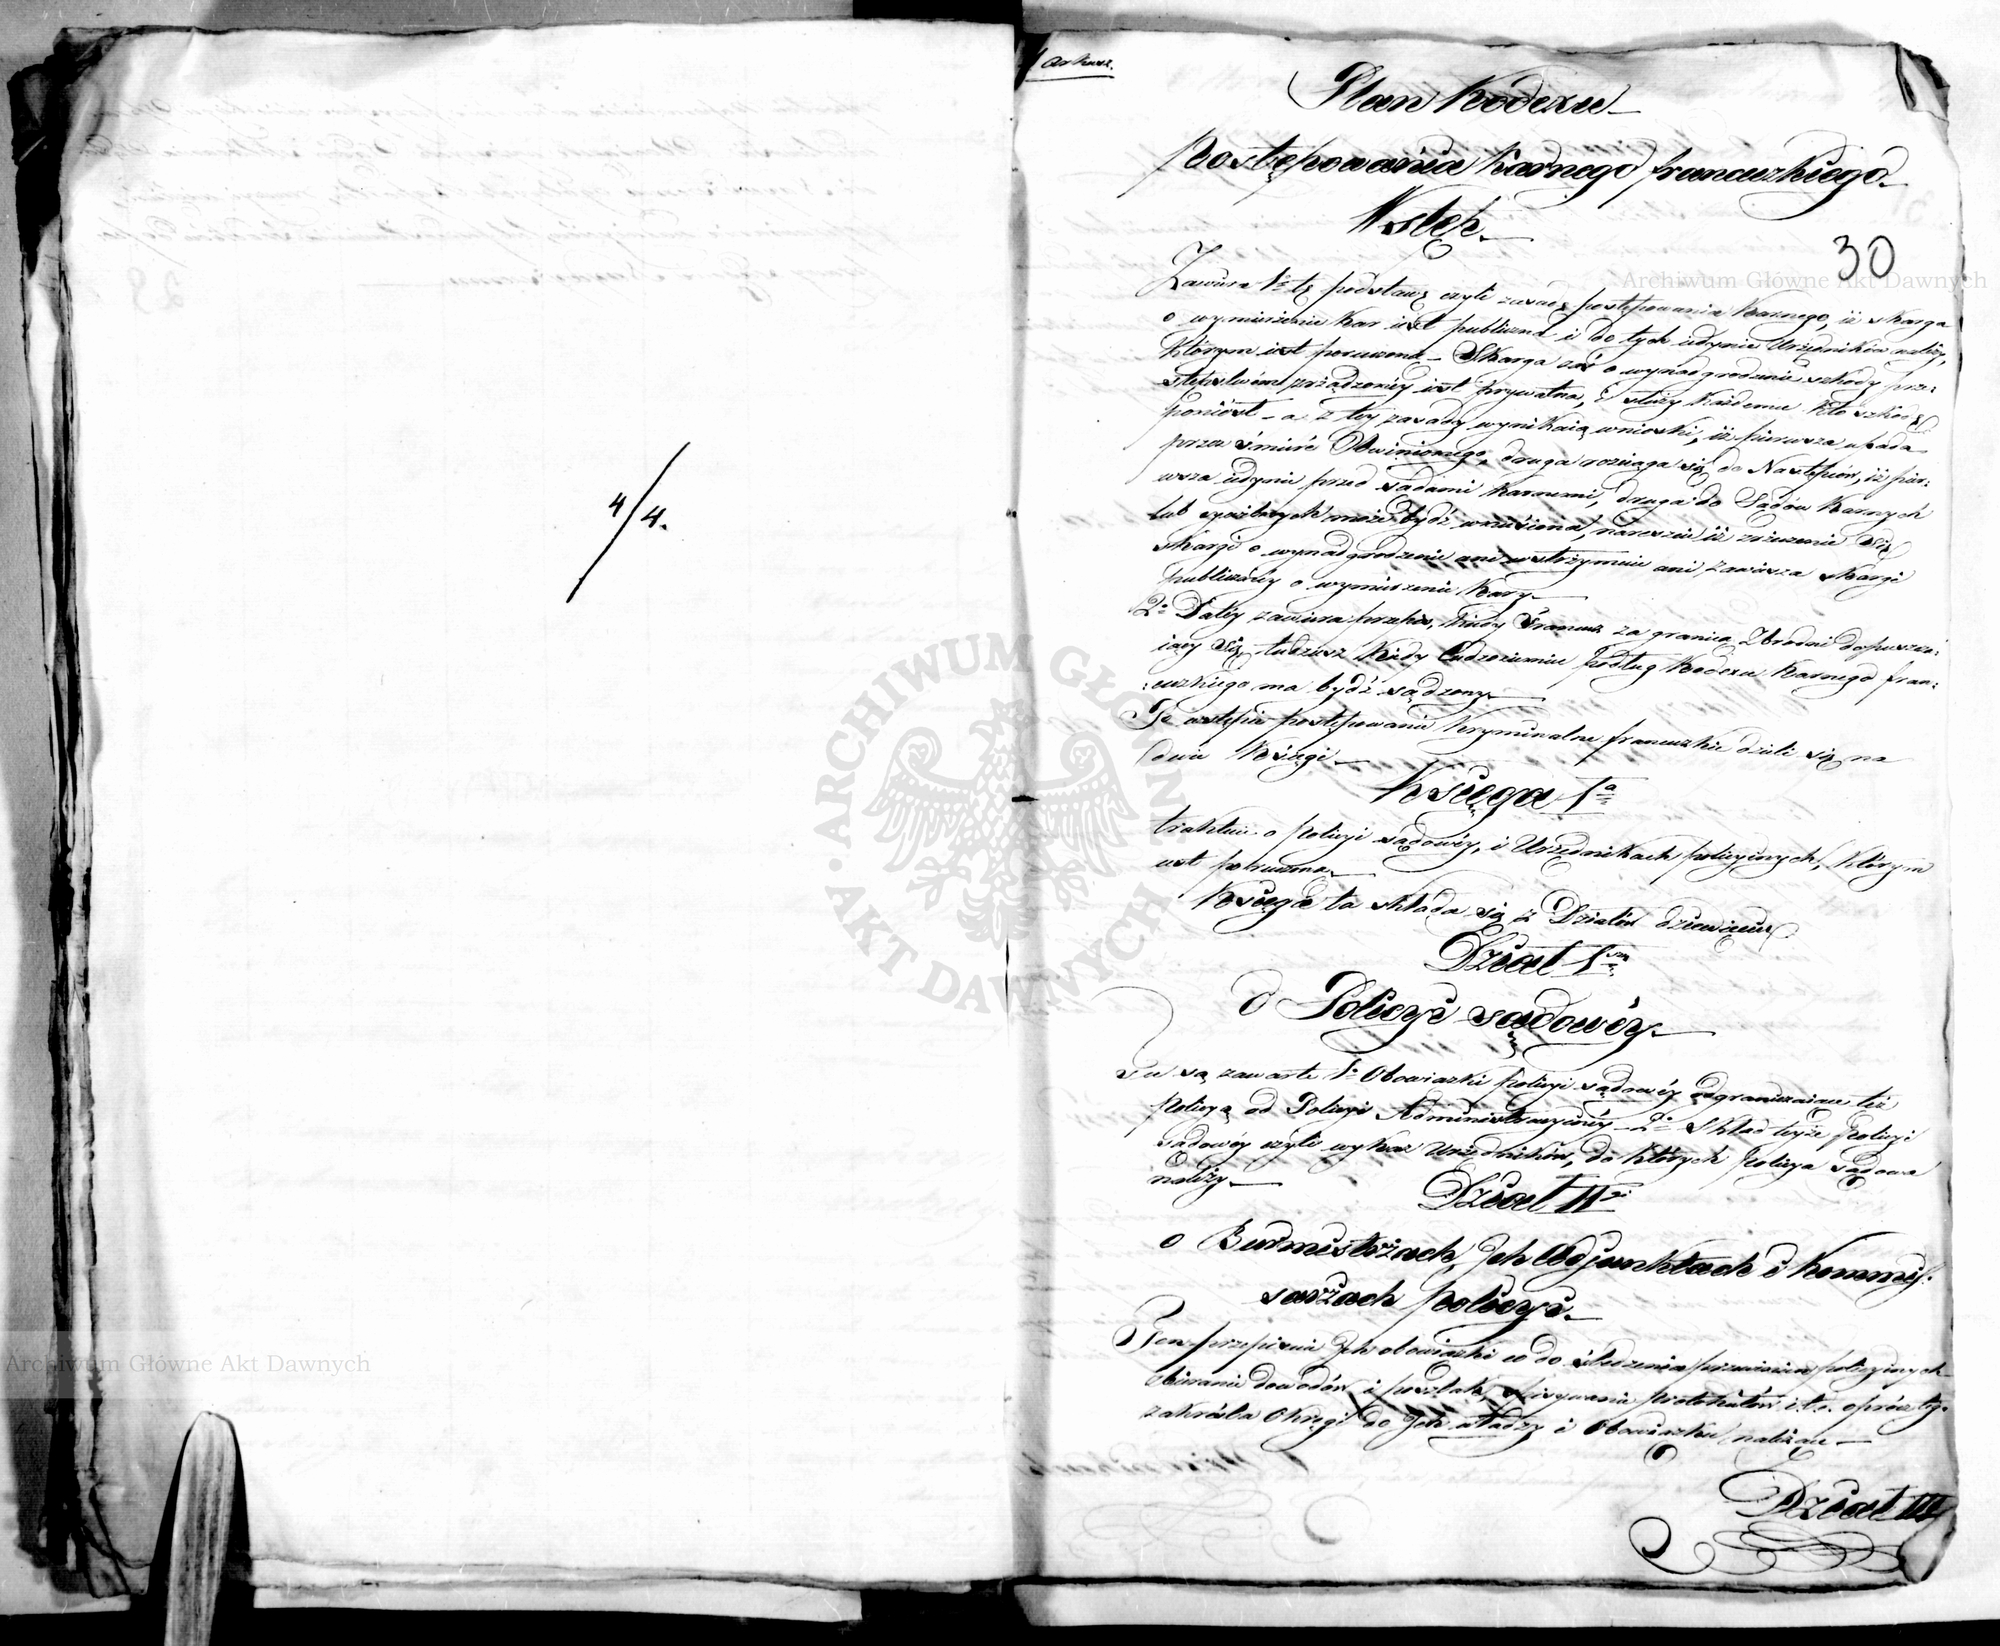 4/4.
Arkusz.
Plan Kodexu
Postępowania Karnego francuzkiego.
Wstęp.
30
Zawiera 1o tę podstawę czyli zasadę postępowania Karnego, iż skarga
o wymierzenie kar iest publiczna i do tych iedynie Urzędników należy,
którym iest poruczona – Skarga zaś o wynadgrodzenie szkody prze:
stępstwem zrządzoney iest prywatna, i służy każdemu kto szkodę
poniosł – a z tey zasady wynikaią wnioski, iż pierwsza upada
przez śmierć Obwinionego, druga rozciąga się do Następców, iż pier:
wsza iedynie przed sądami karnemi, druga do Sądów Karnych
lub cywilnych może bydź wniesiona, nareszcie iż zrzeczenie się
skargi o wynadgrodzenie ani wstrzymuie ani zawiesza skargi
publiczney o wymierzenie kary.
2o Daley zawiera przepis, kiedy Francuz za granicą Zbrodni dopuszcza:
iący się tudzież kiedy Cudzoziemiec podług Kodexu Karnego fran:
:cuzkiego ma bydź sądzony.
Po wstępie postępowanie kryminalne francuzkie dzieli się na
dwie Księgi.
Księga 1a
traktuie o policyi sądowéy, i Urzędnikach policyinych, którym
iest poruczona.
Księga ta składa się z Działów dziewięciu
Dział 1szy
O Policyi sądowéy.
Tu są zawarte 1o Obowiązki policyi sądowéy odgraniczaiące też
policyą od Policyi Administracyinéy – 2o Skład teyże Policyi
sądowéy czyli wykaz Urzędników, do których policya sądowa
należy.
Dział IIgi
o Burmistrzach, Ich Adjunktach i Kommis:
sarzach policyi.
Ten przepisuie Ich obowiązki co do śledzenia przewinień policyinych
zbierania dowodów i poszlak, spisywania protokułów i t. d. oprócz tego
zakréśla Okręgi do Ich władzy i Obowiązków należące –
Dział III
Archiwum Główne Akt Dawnych
Archiwum Główne Akt Dawnych
ARCHIWUM GŁÓWNE AKT DAWNYCH